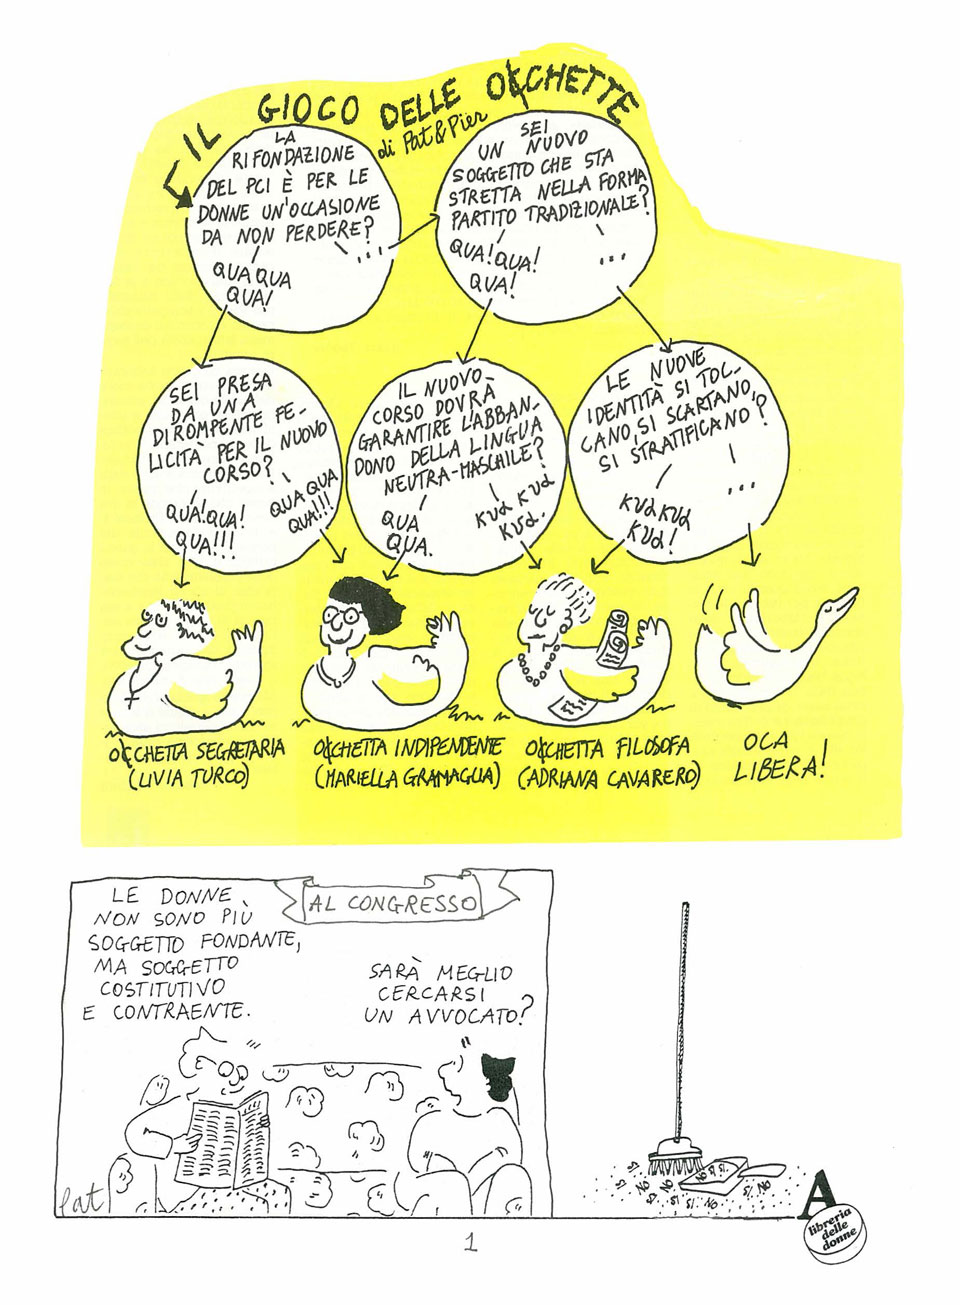 IL GIOCO DELLE OCCHETTE
di Pat & Pier
LA
RIFONDAZIONE
DEL PCI È PER LE
DONNE UN'OCCASIONE
DA NON PERDERE?
...
QUA QUA
QUA!
SEI
UN NUOVO
SOGGETTO CHE STA
STRETTA NELLA FORMA
PARTITO TRADIZIONALE?
QUA! QUA!
QUA!
...
SEI PRESA
DA UNA
DIROMPENTE FE-
LICITÀ PER IL NUOVO
CORSO?
QUA! QUA!
QUA!!!
QUA QUA
QUA!!!
IL NUOVO
CORSO DOVRÀ
GARANTIRE L'ABBAN-
DONO DELLA LINGUA
NEUTRA-MASCHILE?
QUA
QUA.
KUA KUA
KUA.
LE NUOVE
IDENTITÀ SI TOC-
CANO, SI SCARTANO,
SI STRATIFICANO?
KUA KUA
KUA!
...
OCCHETTA SEGRETARIA
(LIVIA TURCO)
OCCHETTA INDIPENDENTE
(MARIELLA GRAMAGLIA)
OCCHETTA FILOSOFA
(ADRIANA CAVARERO)
OCA
LIBERA!
AL CONGRESSO
LE DONNE
NON SONO PIÙ
SOGGETTO FONDANTE,
MA SOGGETTO
COSTITUTIVO
E CONTRAENTE.
SARÀ MEGLIO
CERCARSI
UN AVVOCATO?
Pat
SI NO SI NO SI SI NO NO SI SI SI NO
A
libreria
delle
donne
1